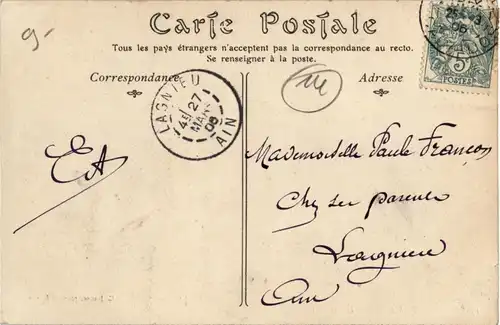 9-
Carte Postale
Tous les pays étrangers n'acceptent pas la correspondance au recto.
Se renseigner à la poste.
Correspondance
Adresse
LAGNIEU
27
MARS
06
AIN
5
POSTES
EA
Mademoiselle Paule François
Chez ses parents
Lagnieu
Ain